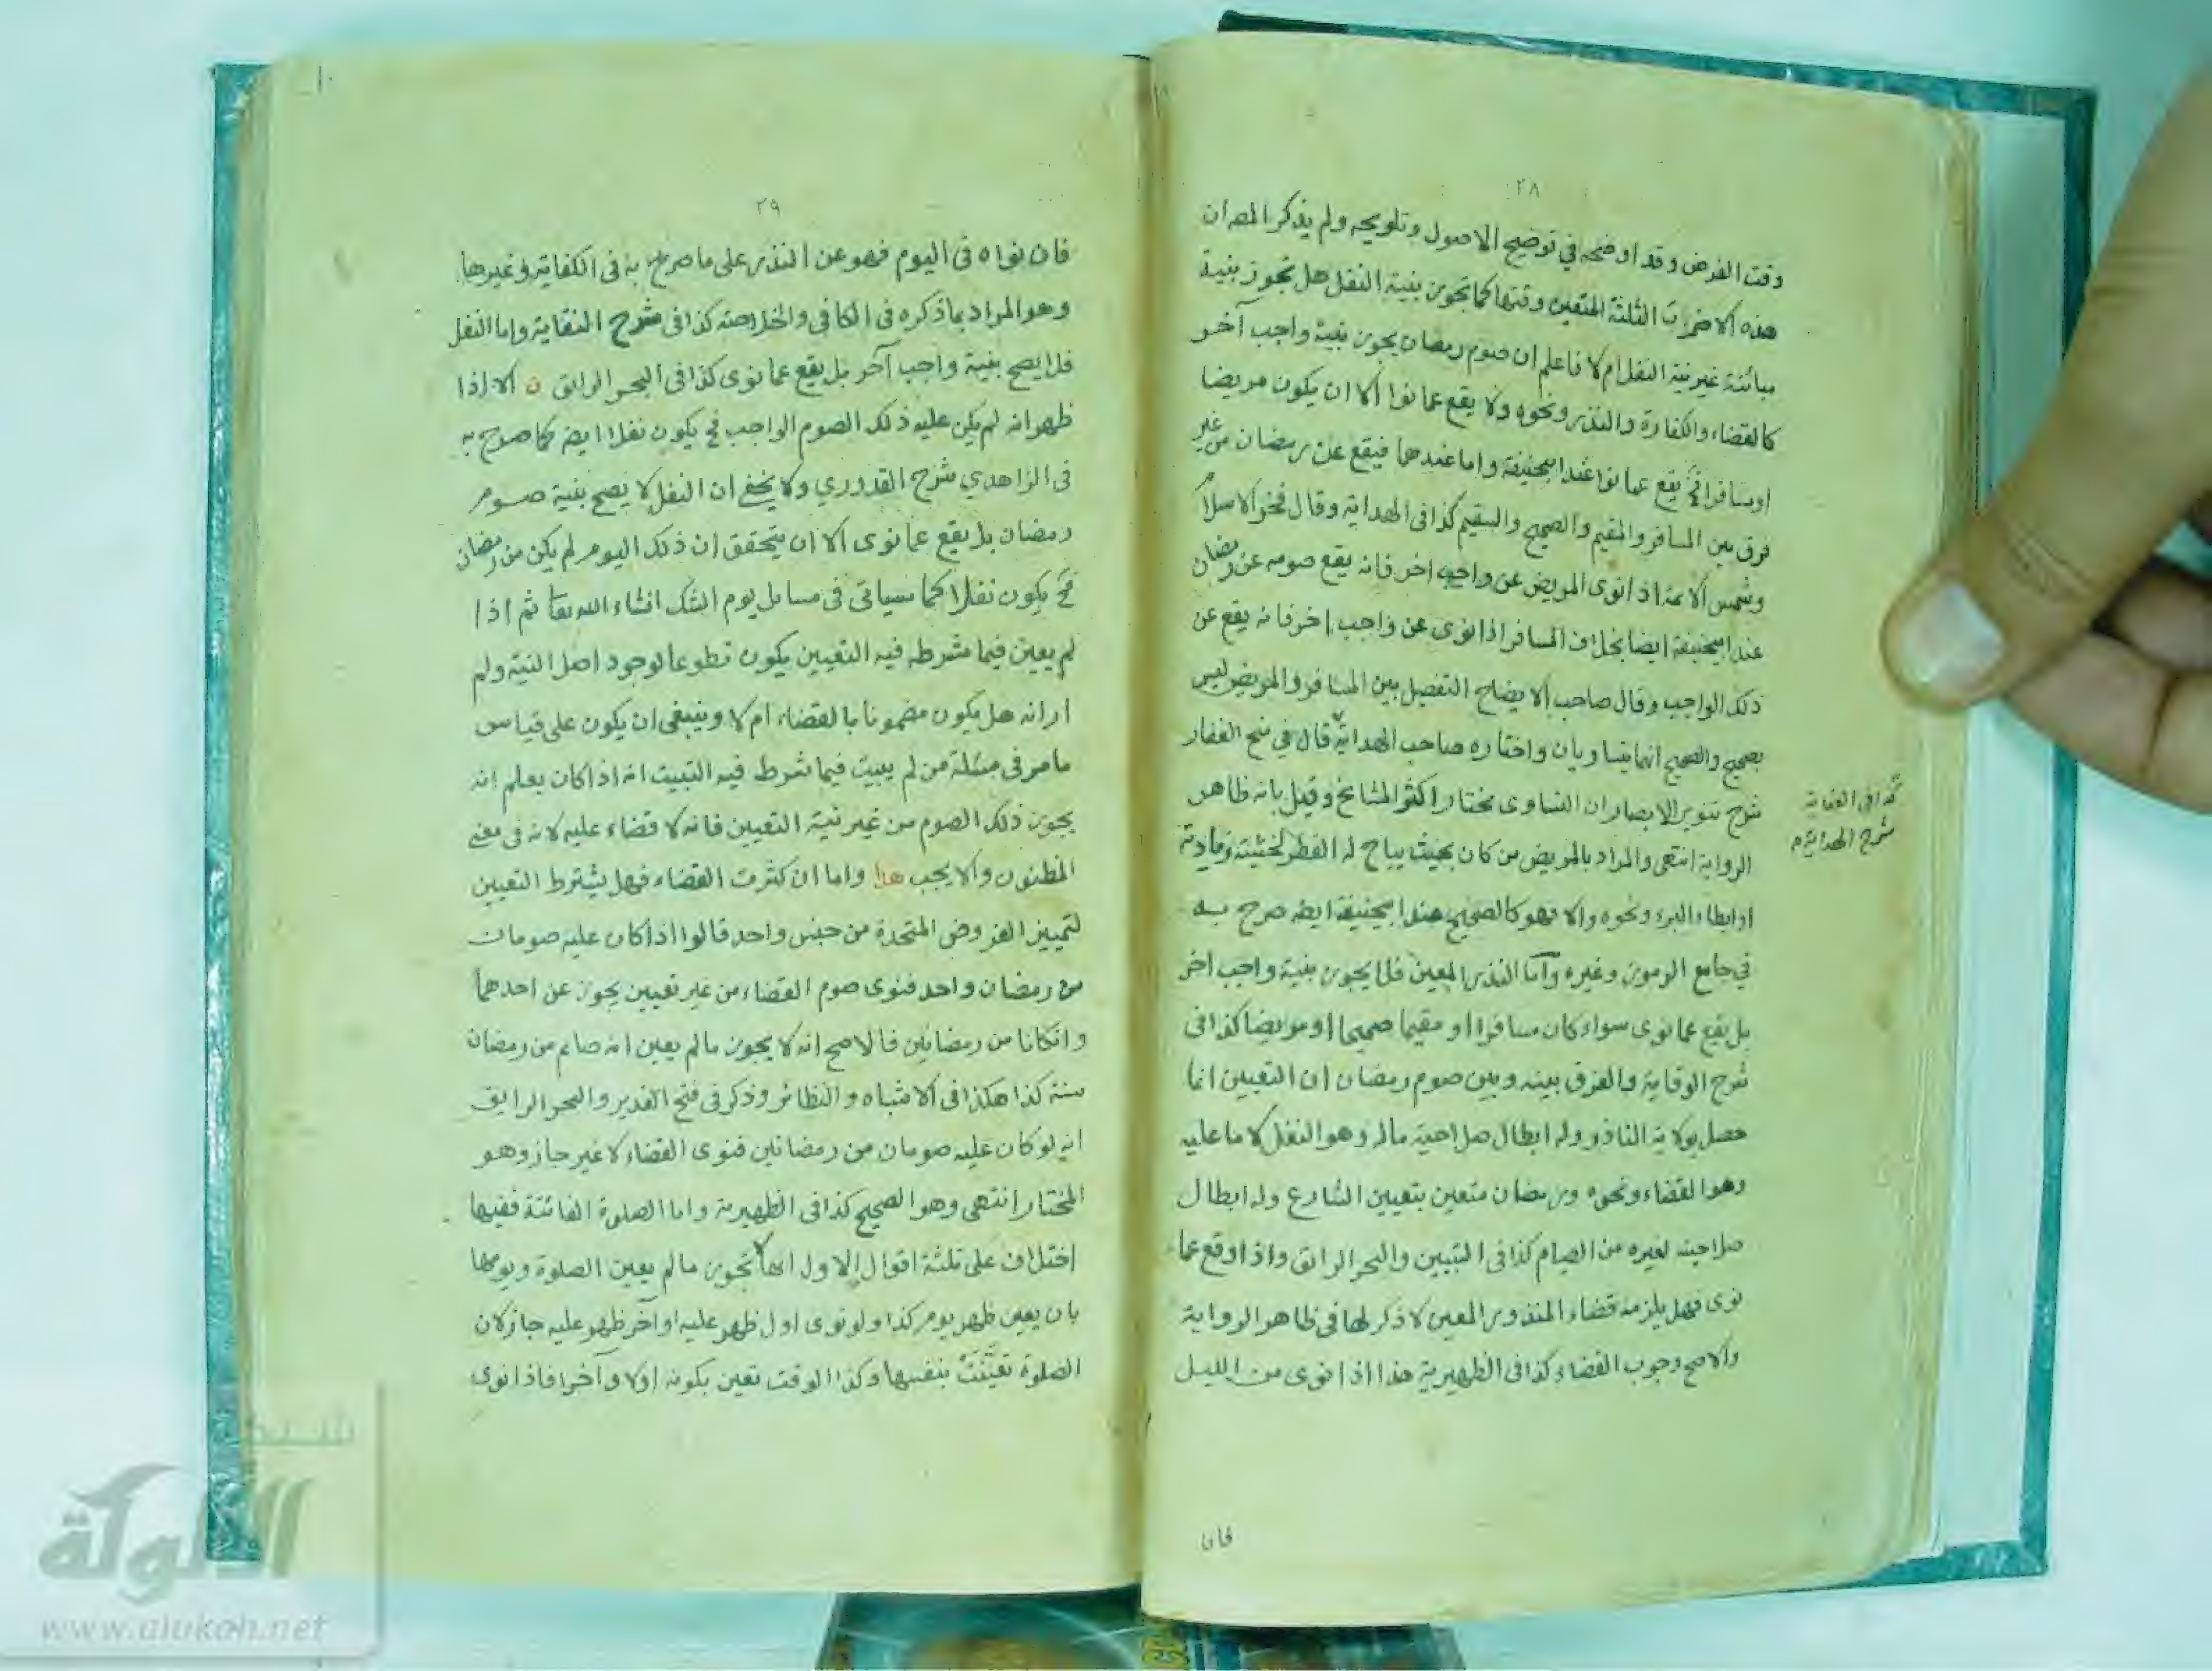 ٢٨
وقت الفرض وقد اوضحه في توضيح الاصول وتلويحه ولم يذكر المصـ ان
هذه الاضرب الثلثة المتعين وقتها كما تجوز بنية النفل هل تجوز بنية
مبائنة غير نية النفل ام لا فاعلم ان صوم رمضان يجوز بنية واجب آخر
كالقضاء والكفارة والنذر ونحوه ولا يقع عما نوا الا ان يكون مريضا
اومسافرا فح يقع عما نوا عند ابيحنيفة واما عندهما فيقع عن رمضان من غير
فرق بين المسافر والمقيم والصحيح والسقيم كذا فى الهداية وقال فخر الاسلام
وشمس الائمة اذ انوى المريض عن واجب اخر فانه يقع صومه عن رمضان
عند ابيحنيفة ايضا بخلاف المسافر اذا نوى عن واجب اخر فانه يقع عن
ذلك الواجب وقال صاحب الايضاح التفصيل بين المسافر والمريض ليس
بصحيح والصحيح انهما يتساويان واختاره صاحب الهداية قال في منح الغفار
شرح تنوير الابصار ان التساوى مختار اكثر المشايخ وقيل بانه ظاهر
الرواية انتهى والمراد بالمريض من كان بحيث يباح له الفطر لخشيته زيادته
او ابطاء البرء ونحوه والا فهو كالصحيح عند ابيحنيفة ايضـ صرح به
في جامع الرموز وغيره وآما النذر المعين فلا يجوز بنية واجب اخر
بل يقع عما نوى سواء كان مسافرا او مقيما صحيحا او مريضا كذا فى
شرح الوقاية والفرق بينه وبين صوم رمضان ان التعيين انما
حصل بولاية الناذر وله ابطال صلاحية ماله وهو النفل لا ما عليه
وهو القضاء ونحوه ورمضان متعين بتعيين الشارع وله ابطال
صلاحيته لغيره من الصيام كذا فى التبيين والبحر الرائق واذا وقع عما
نوى فهل يلزمه قضاء المنذور المعين لا ذكر لها فى ظاهر الرواية
والاصح وجوب القضاء كذا فى الظهيرية هذا اذا نوى من الليل
كذا فى العناية
شرح الهداية
فان
٢٩
فان نواه فى اليوم فهو عن النذر على ما صرح به فى الكفاية وغيرها
وهو المراد بما ذكره فى الكافي والخلاصة كذا فى شرح النقاية واما النفل
فلا يصح بنية واجب آخر بل يقع عما نوى كذا فى البحر الرائق ن الا اذا
ظهر انه لم يكن عليه ذلك الصوم الواجب فح يكون نفلا ايضـ كما صرح به
فى الزاهدي شرح القدوري ولا يخفى ان النفل لا يصح بنية صوم
رمضان بل يقع عما نوى الا ان يتحقق ان ذلك اليوم لم يكن من رمضان
فح يكون نفلا كما سياتى فى مسائل يوم الشك انشاء الله تعا ثم اذا
لم يعين فيما شرط فيه التعيين يكون تطوعا لوجود اصل النية ولم
ار انه هل يكون مضمونا بالقضاء ام لا وينبغى ان يكون على قياس
ما مر فى مسئلة من لم يبيت فيما شرط فيه التبييت انه اذا كان يعلم انه
يجوز ذلك الصوم من غير نية التعيين فانه لا قضاء عليه لانه فى معنى
المظنون والا يجب هذا واما ان كثرت القضاء فهل يشترط التعيين
لتمييز الفروض المتحدة من جنس واحد قالوا اذا كان عليه صومان
من رمضان واحد فنوى صوم القضاء من غير تعيين يجوز عن احدهما
وانكانا من رمضانين فالاصح انه لا يجوز مالم يعين انه صايم من رمضان
سنة كذا هكذا فى الاشباه والنظائر وذكر فى فتح القدير والبحر الرايق
انه لو كان عليه صومان من رمضانين فنوى القضاء لا غير جاز وهو
المختار انتهى وهو الصحيح كذا فى الظهيرية واما الصلوة الفائتة ففيها
اختلاف على ثلثة اقوال الاول انها لا تجوز مالم يعين الصلوة ويومها
بان يعين ظهر يوم كذا ولو نوى اول ظهر عليه او آخر ظهر عليه جاز لان
الصلوة تعيّنت بنفسها وكذا الوقت تعين بكونه اولا وآخرا فاذا نوى
شبكة
الألوكة
www.alukah.net